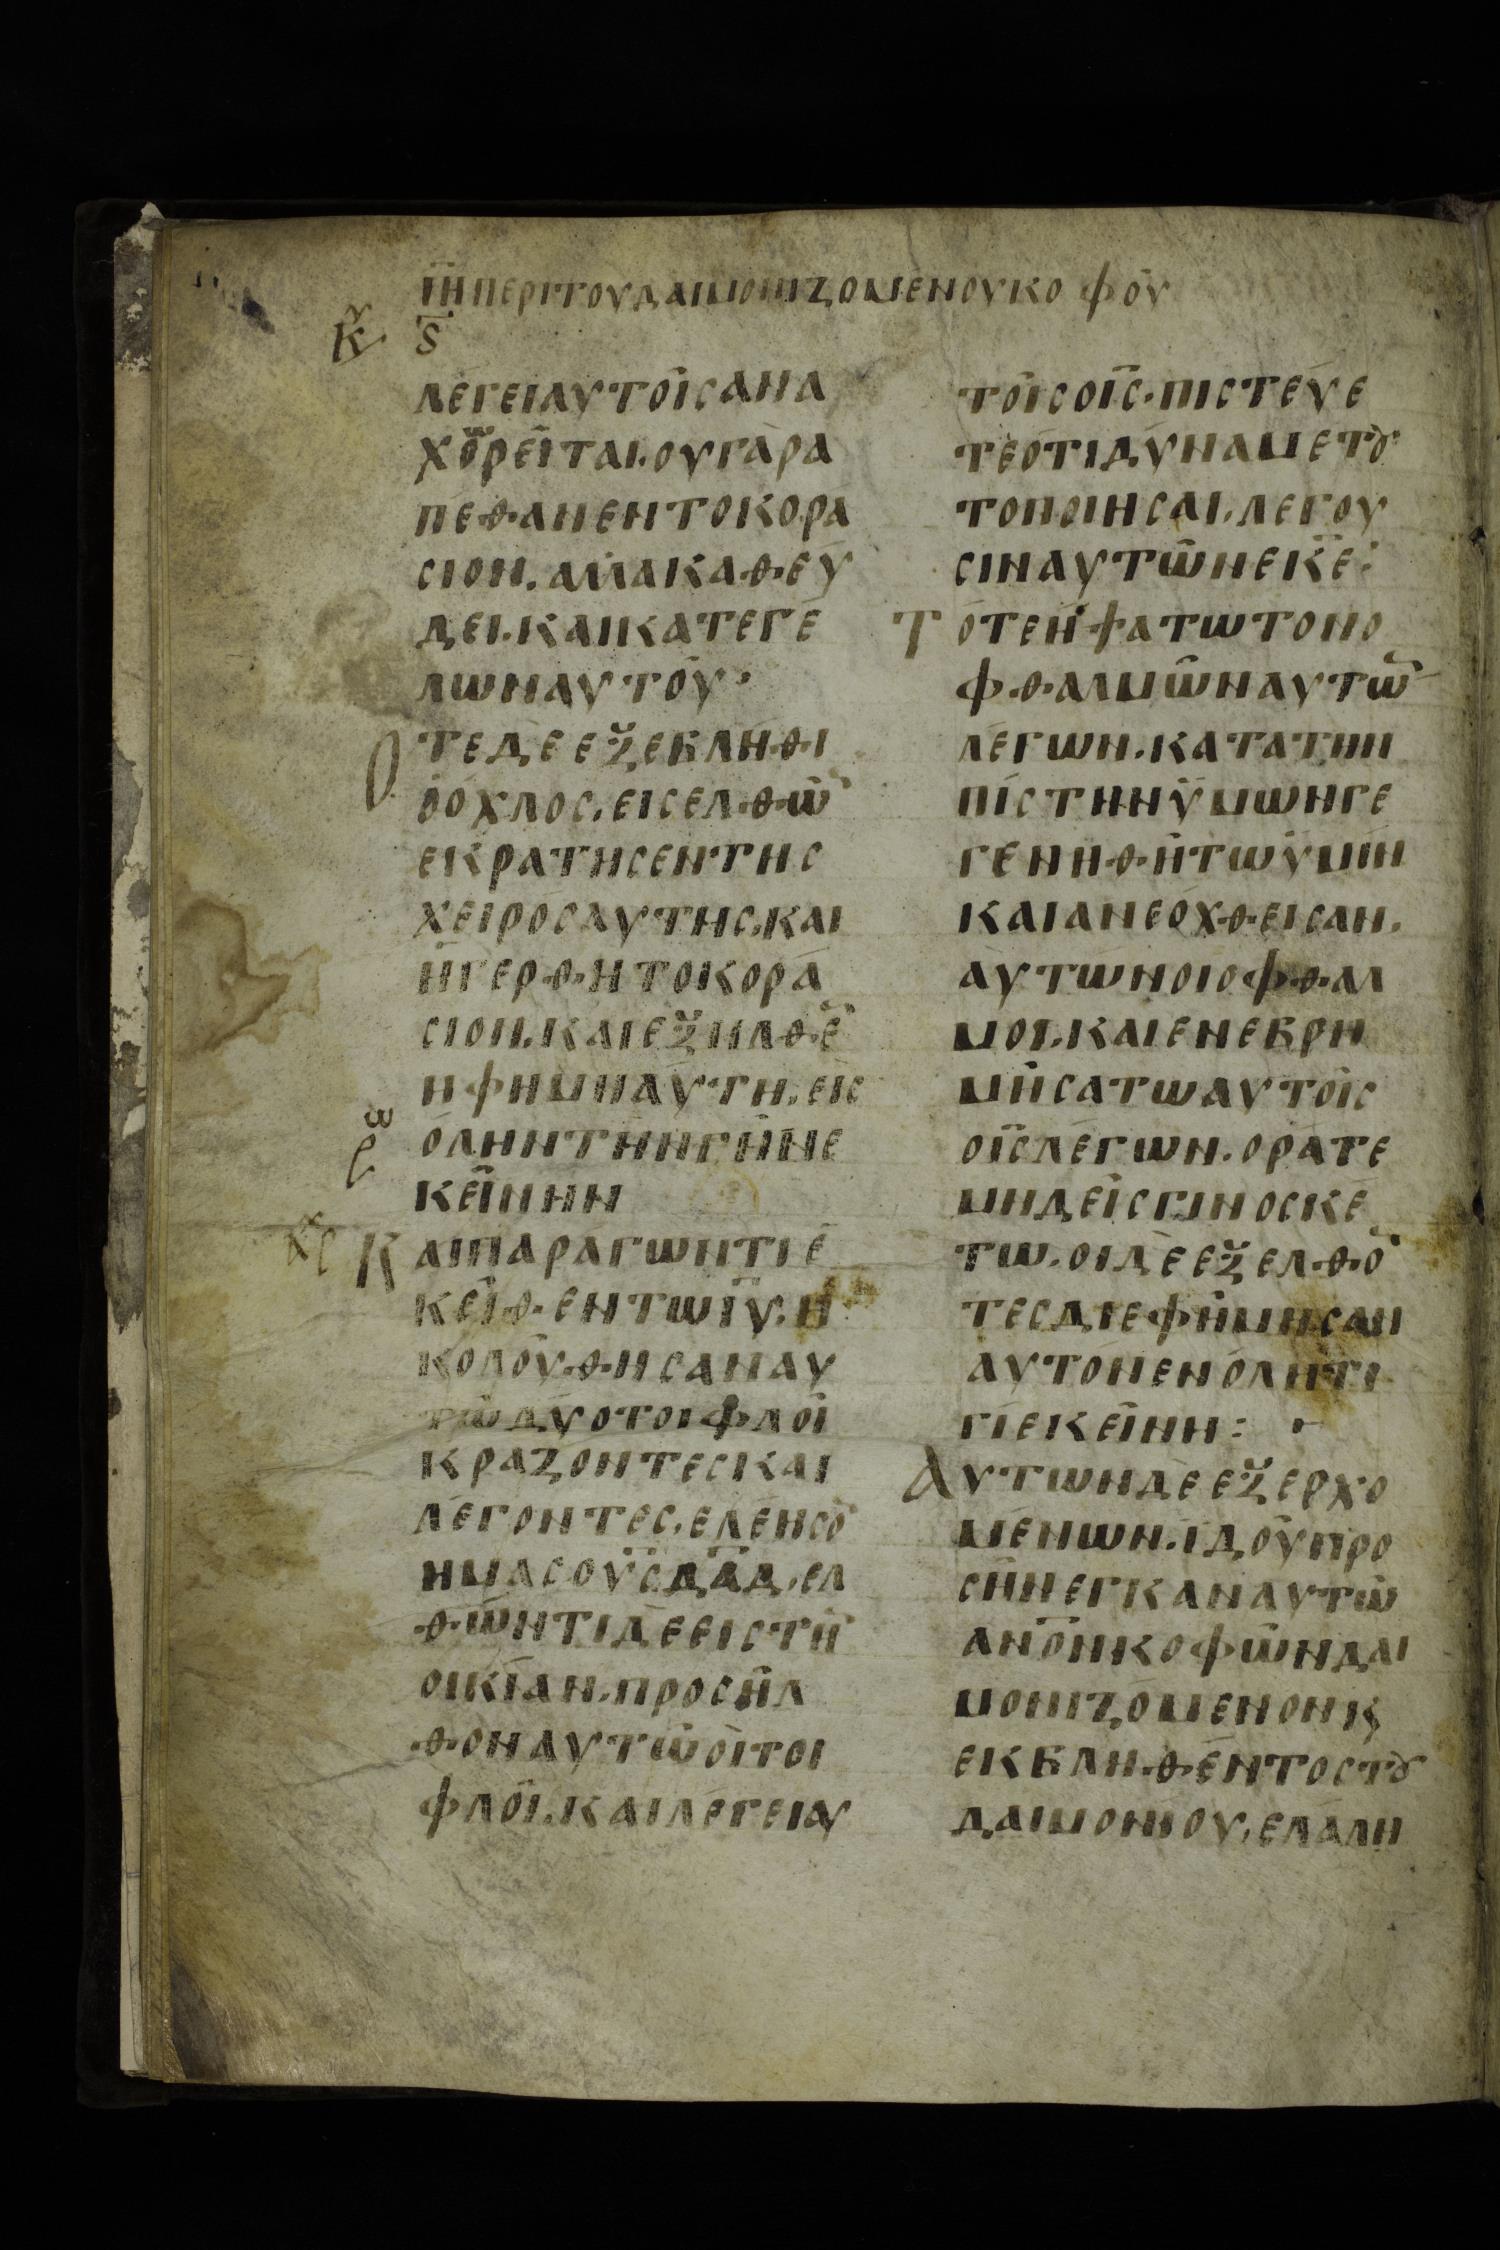 ΙΗ ΠΕΡΙΤΟΥΔΑΙΜΟΝΙΖΟΜΕΝΟΥΚΟ ΦΟΥ
ΛΕΓΕΙΑΥΤΟΙΣΑΝΑ
ΧΟΡΕΙΤΑΙ·ΟΥΓΑΡΑ
ΠΕΘΑΝΕΝΤΟΚΟΡΑ
ΣΙΟΝ·ΑΛΛΑΚΑΘΕΥ
ΔΕΙ·ΚΑΙΚΑΤΕΓΕ
ΛΩΝΑΥΤΟΥ·
ΟΤΕΔΕΕΞΕΒΛΗΘΙ
ΟΟΧΛΟΣ·ΕΙΣΕΛΘΩ̄
ΕΚΡΑΤΗΣΕΝΤΗΣ
ΧΕΙΡΟΣΑΥΤΗΣ·ΚΑΙ
ΗΓΕΡΘΗΤΟΚΟΡΑ
ΣΙΟΝ·ΚΑΙΕΞΗΛΘΕ̄
ΗΦΗΜΗΑΥΤΗ·ΕΙΣ
ΟΛΗΝΤΗΝΓΗΝΕ
ΚΕΙΝΗΝ
ΚΑΙΠΑΡΑΓΩΝΤΙΕ
ΚΕΙΘΕΝΤΩΙ̅Υ̅·Η
ΚΟΛΟΥΘΗΣΑΝΑΥ
ΤΩΔΥΟΤΟΙΦΛΟΙ
ΚΡΑΖΟΝΤΕΣΚΑΙ
ΛΕΓΟΝΤΕΣ·ΕΛΕΗΣΟ̄
ΗΜΑΣΟΥ̅Σ̅Δ̅Α̅Δ̅·ΕΛ
ΘΩΝΤΙΔΕΕΙΣΤΗ̄
ΟΙΚΙΑΝ·ΠΡΟΣΗΛ
ΘΟΝΑΥΤΩΟΙΤΟΙ
ΦΛΟΙ·ΚΑΙΛΕΓΕΙΑΥ
ΤΟΙΣΟΙ̅Σ̅·ΠΙΣΤΕΥΕ
ΤΕΟΤΙΔΥΝΑΜΕΤȢ
ΤΟΠΟΙΗΣΑΙ·ΛΕΓΟΥ
ΣΙΝΑΥΤΩΝΕΚ̅Ε̅:
ΤΟΤΕΗΦΑΤΩΤΟΝΟ
ΦΘΑΛΜΩΝΑΥΤΩ̄
ΛΕΓΩΝ·ΚΑΤΑΤΗΝ
ΠΙΣΤΗΝΥΜΩΝΓΕ
ΓΕΝΗΘΗΤΩΥΜΙΝ
ΚΑΙΑΝΕΟΧΘΕΙΣΑΝ·
ΑΥΤΩΝΟΙΟΦΘΑΛ
ΜΟΙ·ΚΑΙΕΝΕΒΡΗ
ΜΗΣΑΤΩΑΥΤΟΙΣ
ΟΙ̅Σ̅ΛΕΓΩΝ·ΟΡΑΤΕ
ΜΗΔΕΙΣΓΙΝΟΣΚΕ
ΤΩ·ΟΙΔΕΕΞΕΛΘΟ̄
ΤΕΣΔΙΕΦΗΜΗΣΑΝ
ΑΥΤΟΝΕΝΟΛΗΤΙ
ΓΙΕΚΕΙΝΗ:
ΑΥΤΩΝΔΕΕΞΕΡΧΟ
ΜΕΝΩΝ·ΙΔΟΥΠΡΟ
ΣΗΝΕΓΚΑΝΑΥΤΩ
ΑΝ̅Ο̅ΝΚΟΦΩΝΔΑΙ
ΜΟΝΙΖΟΜΕΝΟΝΚ
ΕΚΒΛΗΘΕΝΤΟΣΤȢ
ΔΑΙΜΟΝΙΟΥ·ΕΛΑΛΗ